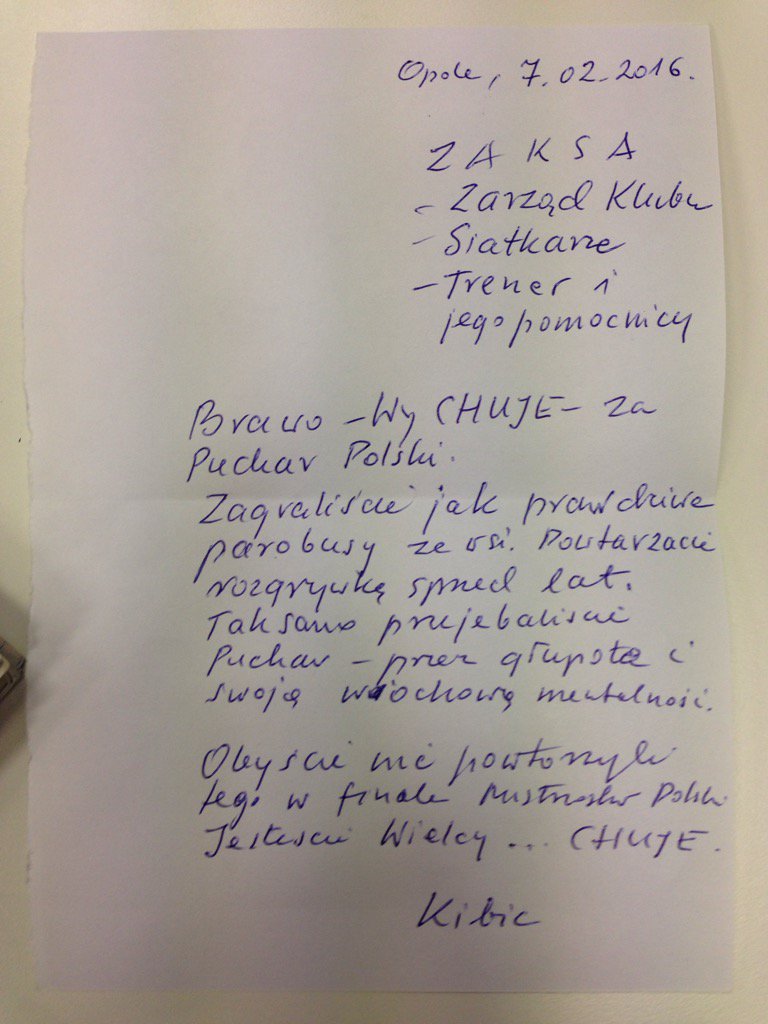 Opole, 7.02.2016.
ZAKSA
- Zarząd Klubu
- Siatkarze
- Trener i
jego pomocnicy
Brawo - Wy CHUJE - za
Puchar Polski.
Zagraliście jak prawdziwe
parobusy ze wsi. Powtarzacie
rozgrywkę sprzed lat.
Tak samo przejebaliście
Puchar - przez głupotę i
swoją wiochową mentalność.
Obyście nie powtórzyli
tego w finale Mistrzostw Polski
Jesteście Wielcy ... CHUJE.
Kibic